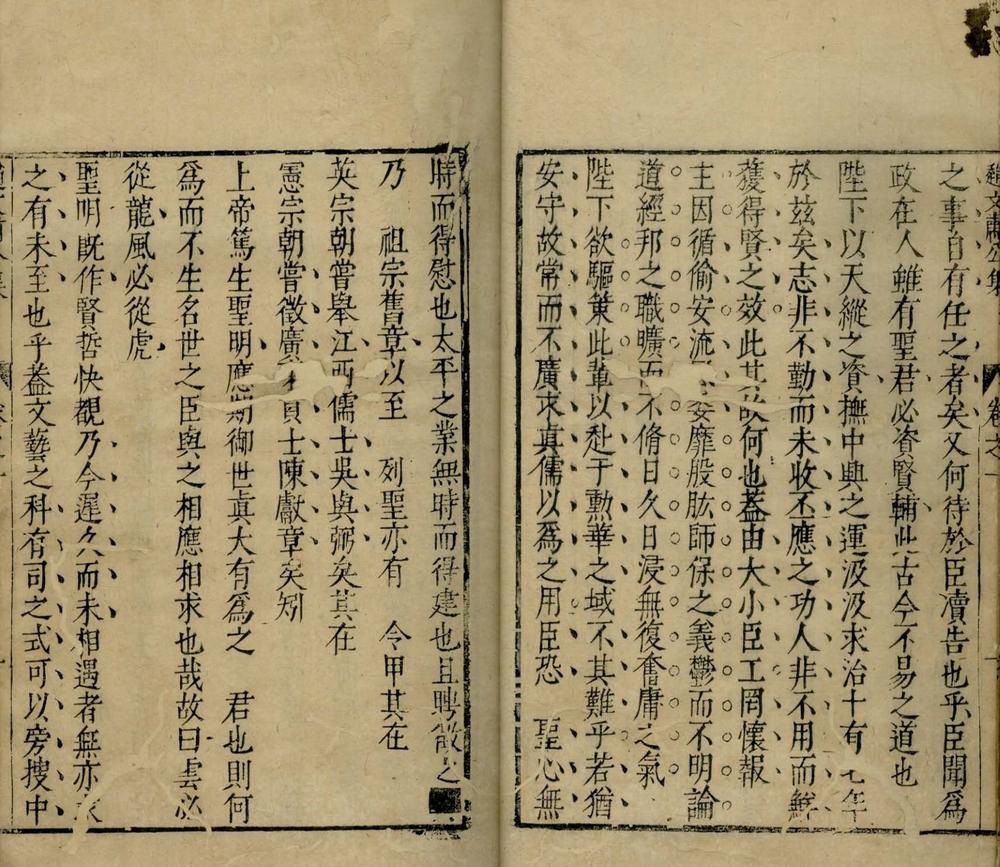 趙文肅公集 卷之一
之事自有任之者矣又何待於臣瀆告也乎臣聞爲
政在人雖有聖君必資賢輔此古今不易之道也
陛下以天縱之資撫中興之運汲汲求治十有七年
於兹矣志非不勤而未收丕應之功人非不用而鮮
獲得賢之效此其故何也葢由大小臣工罔懷報
主因循偷安流委靡股肱師保之義鬱而不明論
道經邦之職曠而不脩日久日浸無復奮庸之氣
陛下欲驅策此輩以赴于勳華之域不其難乎若猶
安守故常而不廣求真儒以爲之用臣恐 聖心無
時而得慰也太平之業無時而得建也且聘徵之
乃 祖宗舊章以至 列聖亦有 令甲其在
英宗朝嘗舉江西儒士吳與弼矣其在
憲宗朝嘗徵廣東貢士陳獻章矣矧
上帝篤生聖明應期御世真大有爲之 君也則何
爲而不生名世之臣與之相應相求也哉故曰雲必
從龍風必從虎
聖明旣作賢哲快覩乃今遲久而未相遇者無亦求
之有未至也乎葢文藝之科有司之式可以旁搜中